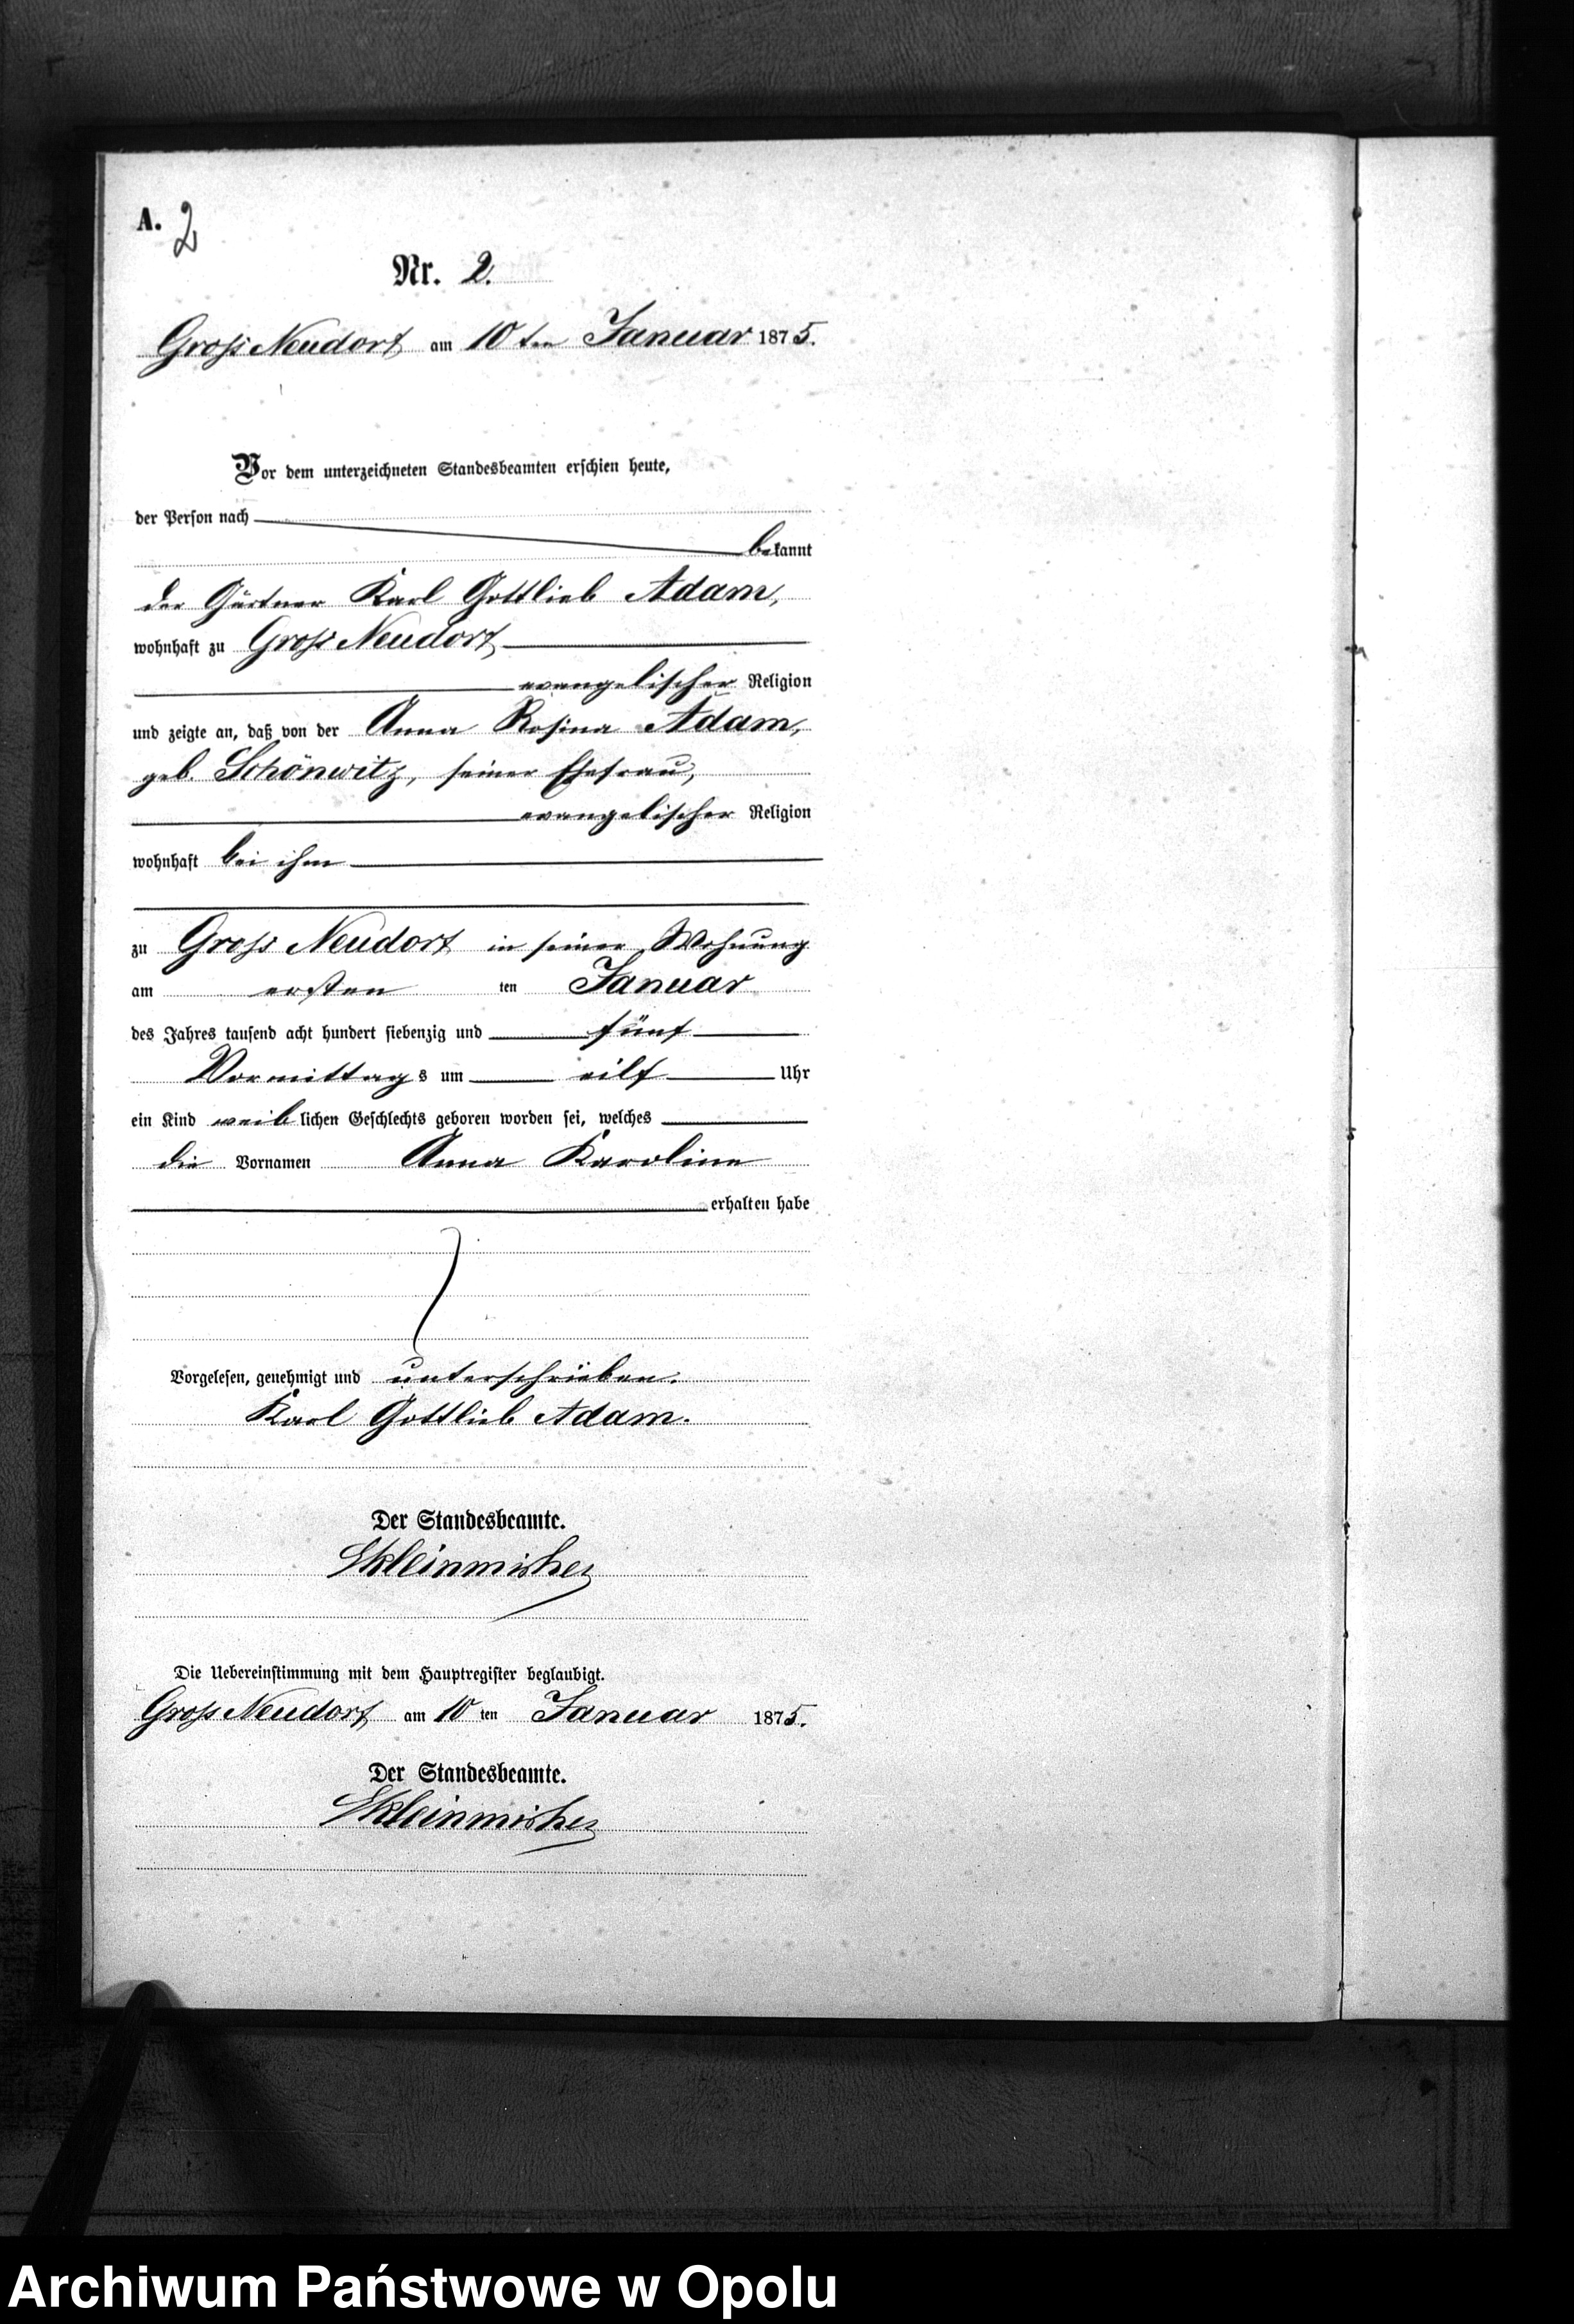 A. 2
Nr. 2.
Groß Neudorf am 10 ten Januar 1875.
Vor dem unterzeichneten Standesbeamten erschien heute,
der Person nach
bekannt
der Gärtner Karl Gottlieb Adam,
wohnhaft zu Groß Neudorf
evangelischer Religion
und zeigte an, daß von der Anna Rosina Adam,
geb. Schönwitz, seiner Ehefrau,
evangelischer Religion
wohnhaft bei ihm
zu Groß Neudorf in seiner Wohnung
am ersten ten Januar
des Jahres tausend acht hundert siebenzig und fünf
Vormittags um eilf Uhr
ein Kind weiblichen Geschlechts geboren worden sei, welches
die Vornamen Anna Karoline
erhalten habe
Vorgelesen, genehmigt und unterschrieben.
Karl Gottlieb Adam.
Der Standesbeamte.
Die Uebereinstimmung mit dem Hauptregister beglaubigt.
Groß Neudorf am 10 ten Januar 1875.
Der Standesbeamte.
Archiwum Państwowe w Opolu